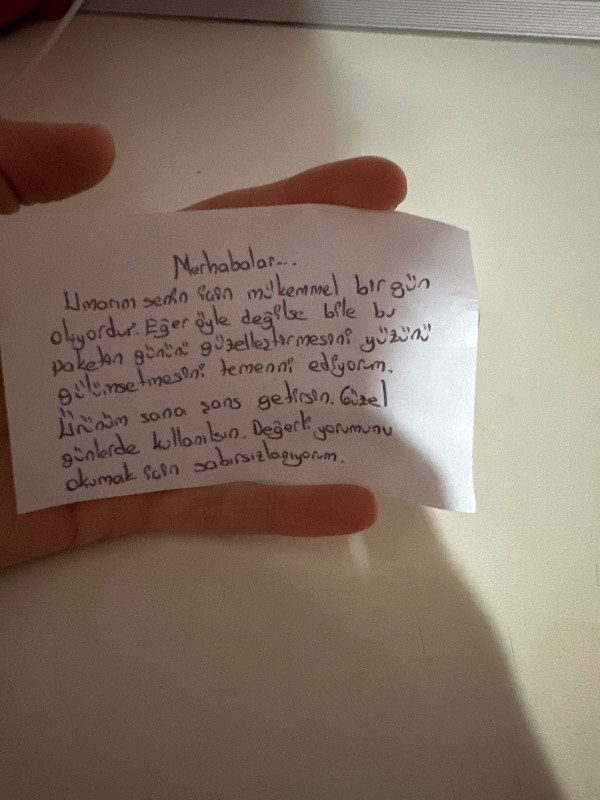 Merhabalar...
Umarım senin için mükemmel bir gün
oluyordur. Eğer öyle değilse bile bu
paketin gününü güzelleştirmesini yüzünü
gülümsetmesini temenni ediyorum.
Ürünüm sana şans getirsin. Güzel
günlerde kullanılsın. Değerli yorumunu
okumak için sabırsızlanıyorum.